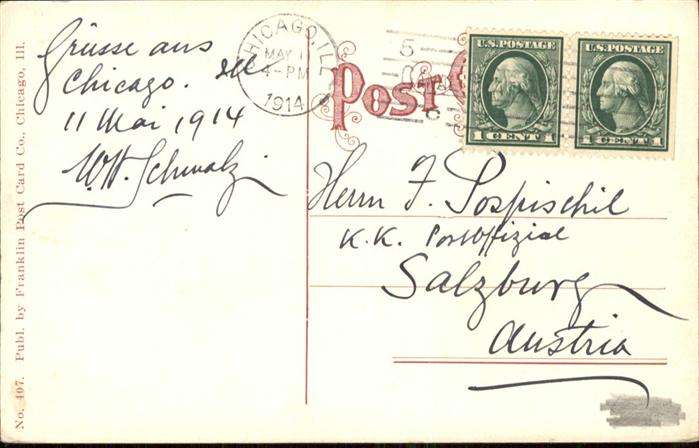 Grüsse aus
Chicago. Ill
11 Mai 1914
W.H. Schwalz
CHICAGO, ILL
MAY 1
4-PM
1914
POST
5
U.S. POSTAGE
1 CENT 1
U.S. POSTAGE
1 CENT 1
Herrn F. Pospischil
K.K. Postoffizial
Salzburg
Austria
No. 407. Publ. by Franklin Post Card Co., Chicago, Ill.